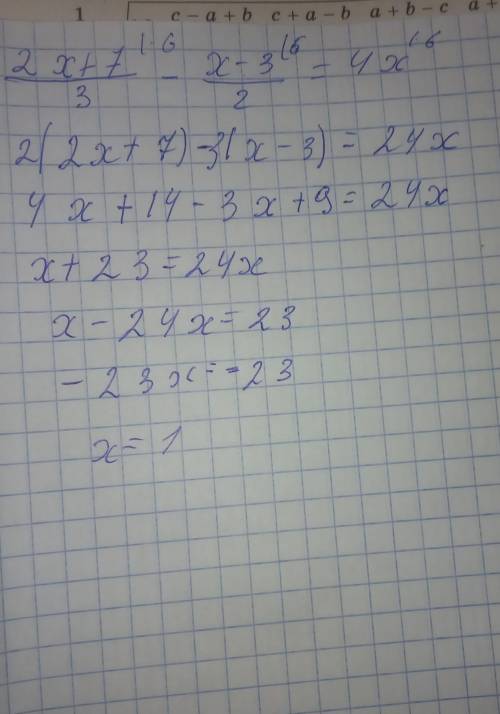 1 c − a + b c + a − b a + b − c a +
(2x+7)/3 |·6 − (x−3)/2 |·6 = 4x |·6
2(2x+7)-3(x-3)=24x
4x+14-3x+9=24x
x+23=24x
x-24x=23
-23x=-23
x=1